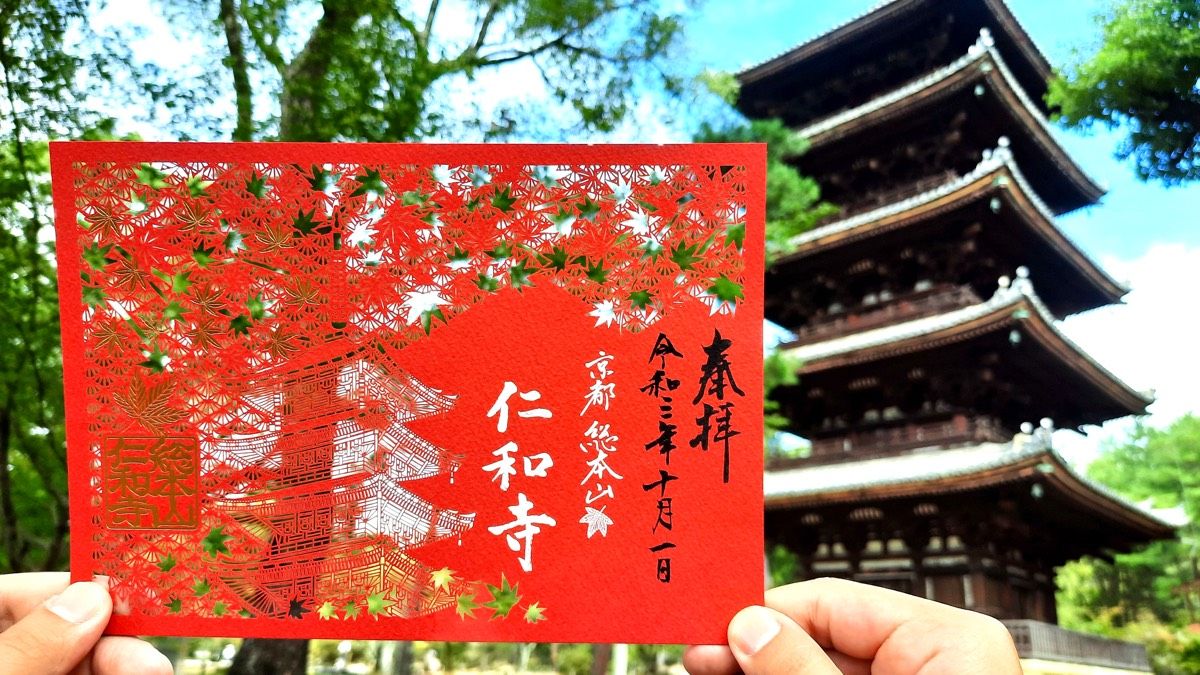 奉拝
令和三年十月一日
京都 総本山
仁和寺
総本山
仁和寺